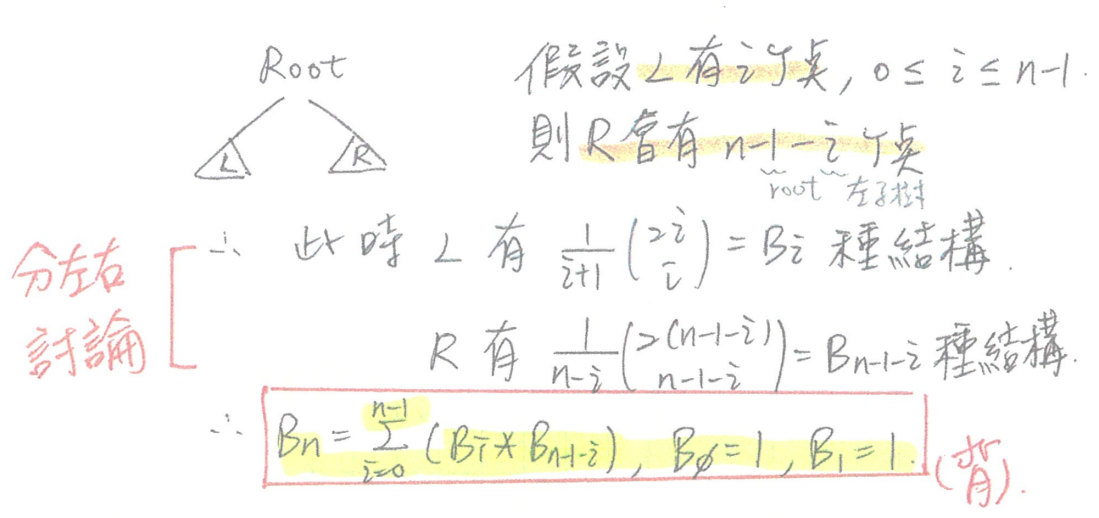 Root
L R
假設L有i個點, 0 ≤ i ≤ n-1.
則R會有 n-1-i 個點
root 左子樹
分左右
討論
∴ 此時 L 有 \frac{1}{i+1} \binom{2i}{i} = Bi 種結構.
R 有 \frac{1}{n-i} \binom{2(n-1-i)}{n-1-i} = B_{n-1-i} 種結構.
∴ Bn = \sum_{i=0}^{n-1} (Bi * B_{n-1-i}), B_0 = 1, B_1 = 1.
(背).